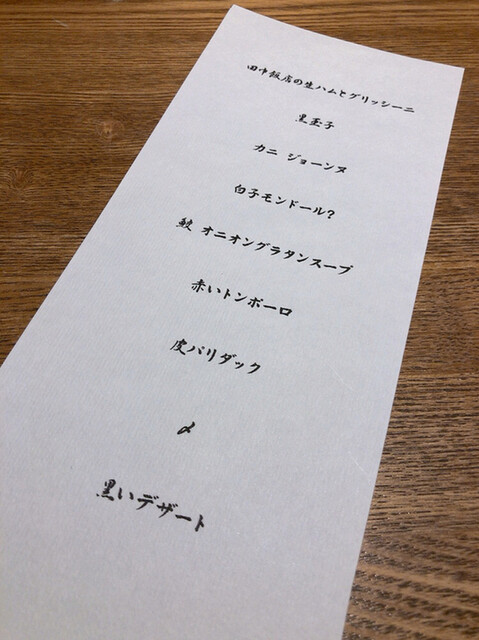 田中飯店の生ハムとグリッシーニ
黒玉子
カニ ジョーンヌ
白子モンドール?
鮫 オニオングラタンスープ
赤いトンポーロ
皮パリダック
〆
黒いデザート